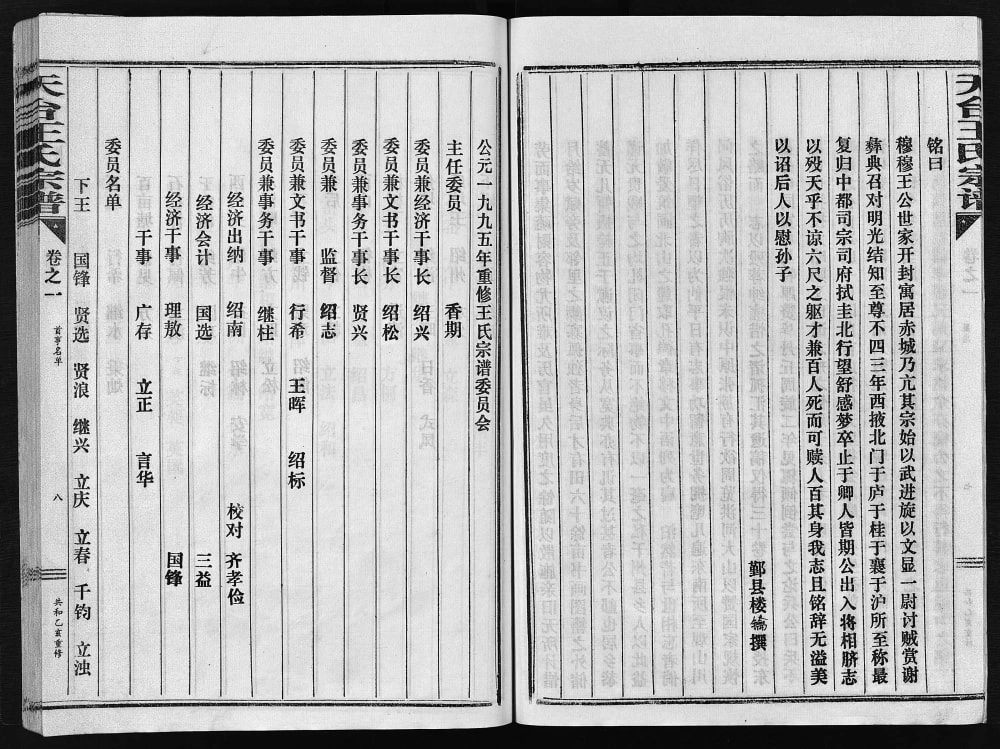 天台王氏宗谱
铭曰
穆穆王公世家开封寓居赤城乃亢其宗始以武进旋以文显一尉讨贼赏谢
彝典召对明光结知至尊不四三年西掖北门于庐于桂于襄于沪所至称最
复归中都司宗司府拭圭北行望舒感梦卒止于卿人皆期公出入将相脐志
以殁天乎不谅六尺之躯才兼百人死而可赎人百其身我志且铭辞无溢美
以诏后人以慰孙子
鄞县楼 撰
公元一九九五年重修王氏宗谱委员会
主任委员 香期
委员兼经济干事长 绍兴
委员兼文书干事长 绍松
委员兼事务干事长 贤兴
委员兼 监督 绍志
委员兼文书干事 行希 王晖 绍标
委员兼事务干事 继柱
经济出纳 绍南 校对 齐孝俭
经济会计 国选 三益
经济干事 理敖 国锋
干事 广存 立正 言华
委员名单
下王 国锋 贤选 贤浪 继兴 立庆 立春 千钧 立浊
天台王氏宗谱 卷之一 首事名单 八 共和乙亥重修